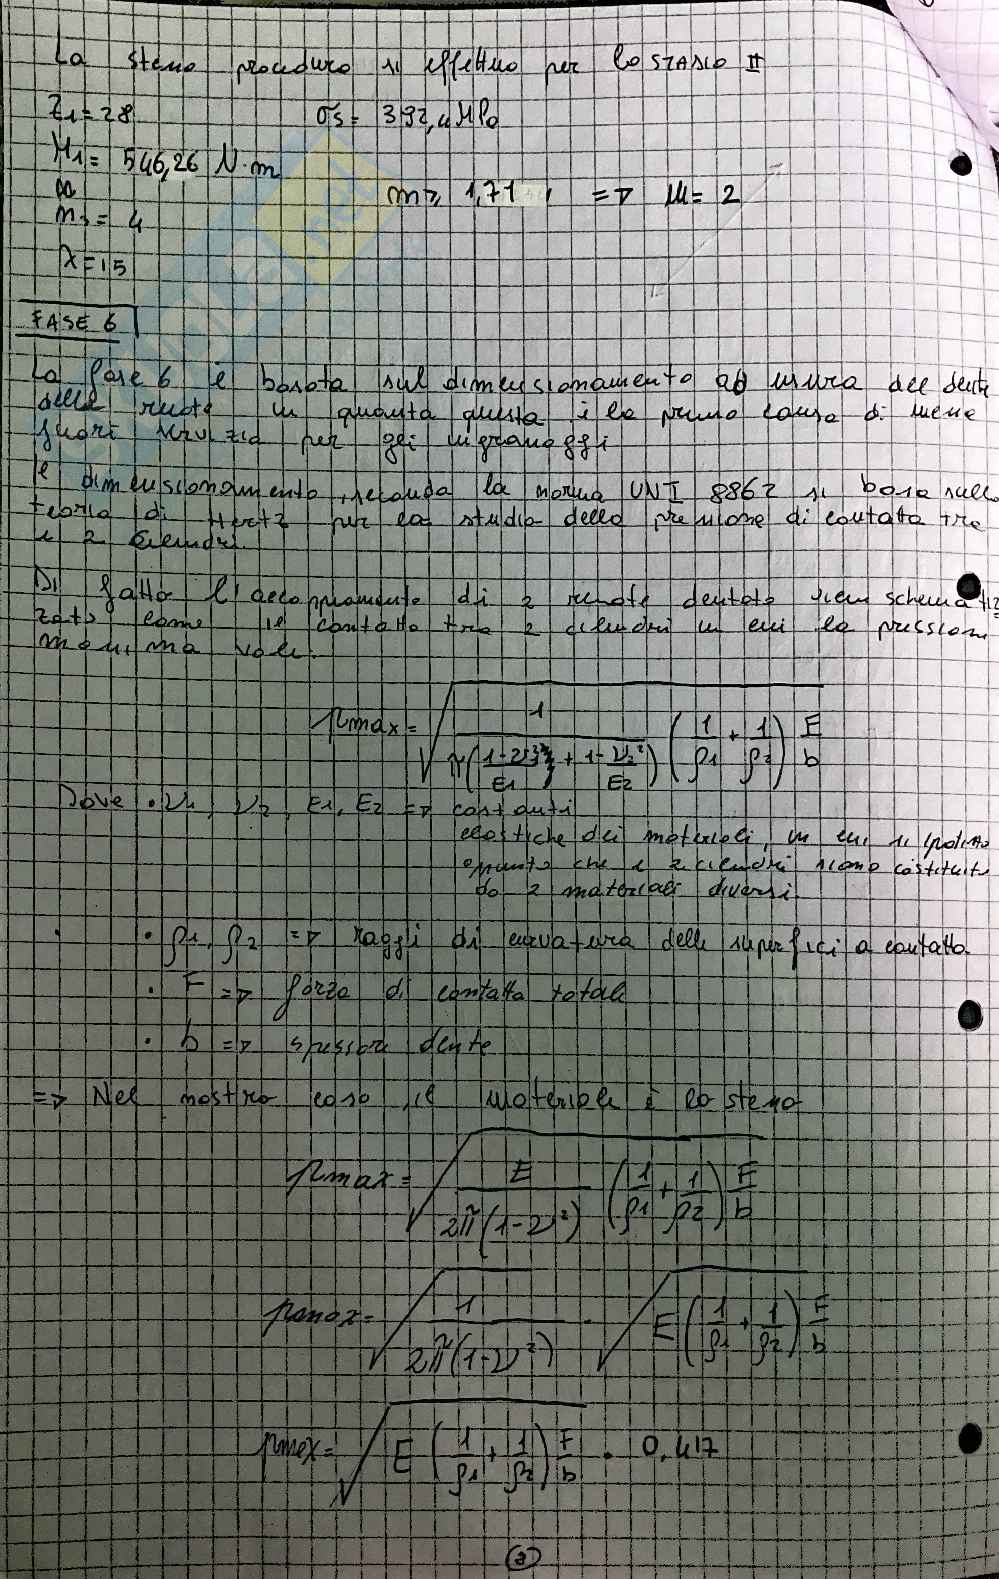 La stessa procedura si effettua per lo STADIO II
Z1 = 28 σs = 392,4 MPa
M1 = 546,26 N·m
m ≥ 1,71 => m = 2
ns = 4
λ = 15
FASE 6
La fase 6 è basata sul dimensionamento ad usura del dente
delle ruote in quanto questa è la prima causa di messa
fuori servizio per gli ingranaggi
il dimensionamento, secondo la norma UNI 8862 si basa sulla
teoria di Hertz per lo studio della pressione di contatto tra
i 2 cilindri.
Di fatto l'accoppiamento di 2 ruote dentate viene schematiz
zato come il contatto tra 2 cilindri in cui la pressione
massima vale:
pmax = √( 1 / π((1-ν1²)/E1 + (1-ν2²)/E2) (1/ρ1 + 1/ρ2) F/b )
Dove • ν1, ν2, E1, E2 => costanti
elastiche dei materiali, in cui si ipotizza
appunto che i 2 cilindri siano costituiti
da 2 materiali diversi.
• ρ1, ρ2 => raggi di curvatura delle superfici a contatto
• F => forza di contatto totale
• b => spessore dente
=> Nel nostro caso, il materiale è lo stesso
pmax = √( E / 2π(1-ν²) (1/ρ1 + 1/ρ2) F/b )
pmax = √( 1 / 2π(1-ν²) ) · √( E (1/ρ1 + 1/ρ2) F/b )
pmax = √( E (1/ρ1 + 1/ρ2) F/b ) · 0,417
3